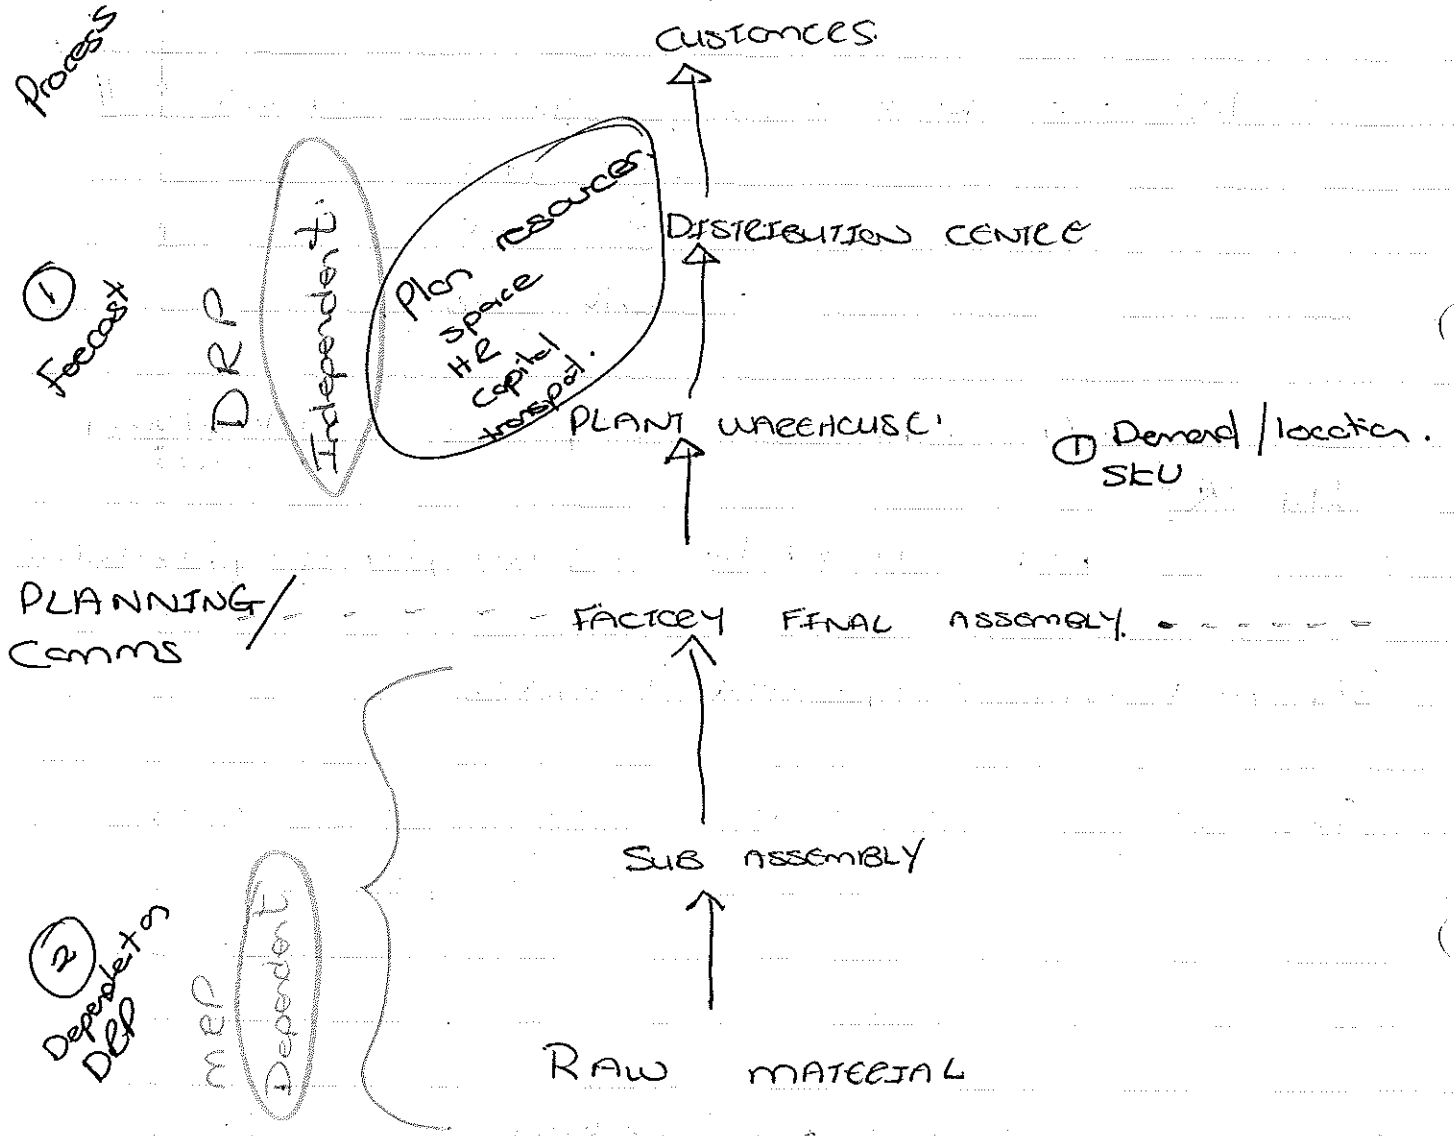 Process
CUSTOMERS.
Independent.
Plan resources.
space
HR
capital
transpot.
DISTRIBUTION CENTRE
1
Forecast
DRP
PLANT WAREHOUSE
1 Demand / location.
SKU
PLANNING/
Comms
FACTORY FINAL ASSEMBLY.
SUB ASSEMBLY
2
Dependent on
DRP
MRP
Dependent
RAW MATERIAL